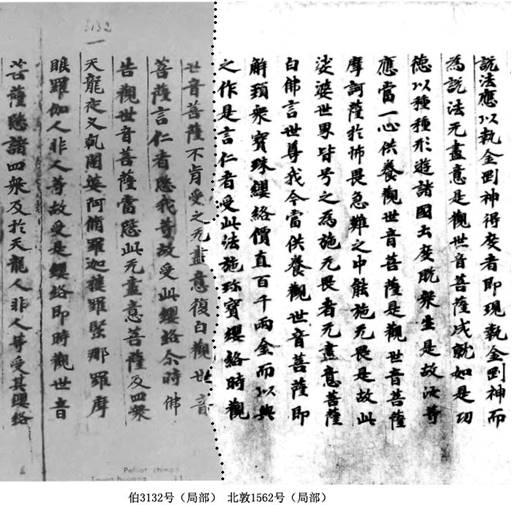 說法應以執金剛神得度者即現執金剛神而
為說法无盡意是觀世音菩薩成就如是功
德以種種形遊諸國土度脫衆生是故汝等
應當一心供養觀世音菩薩是觀世音菩薩
摩訶薩於怖畏急難之中能施无畏是故此
娑婆世界皆号之為施无畏者无盡意菩薩
白佛言世尊我今當供養觀世音菩薩即
解頸衆寶珠纓絡價直百千兩金而以與
之作是言仁者受此法施珎寶纓絡時觀
世音菩薩不肯受之无盡意復白觀世音
菩薩言仁者愍我等故受此纓絡尒時佛
告觀世音菩薩當愍此无盡意菩薩及四衆
天龍夜叉乹闥婆阿脩羅迦樓羅緊那羅摩
睺羅伽人非人等故受是纓絡即時觀世音
菩薩愍諸四衆及於天龍人非人等受其纓絡
3132
Pelliot chinois
伯3132号（局部） 北敦1562号（局部）